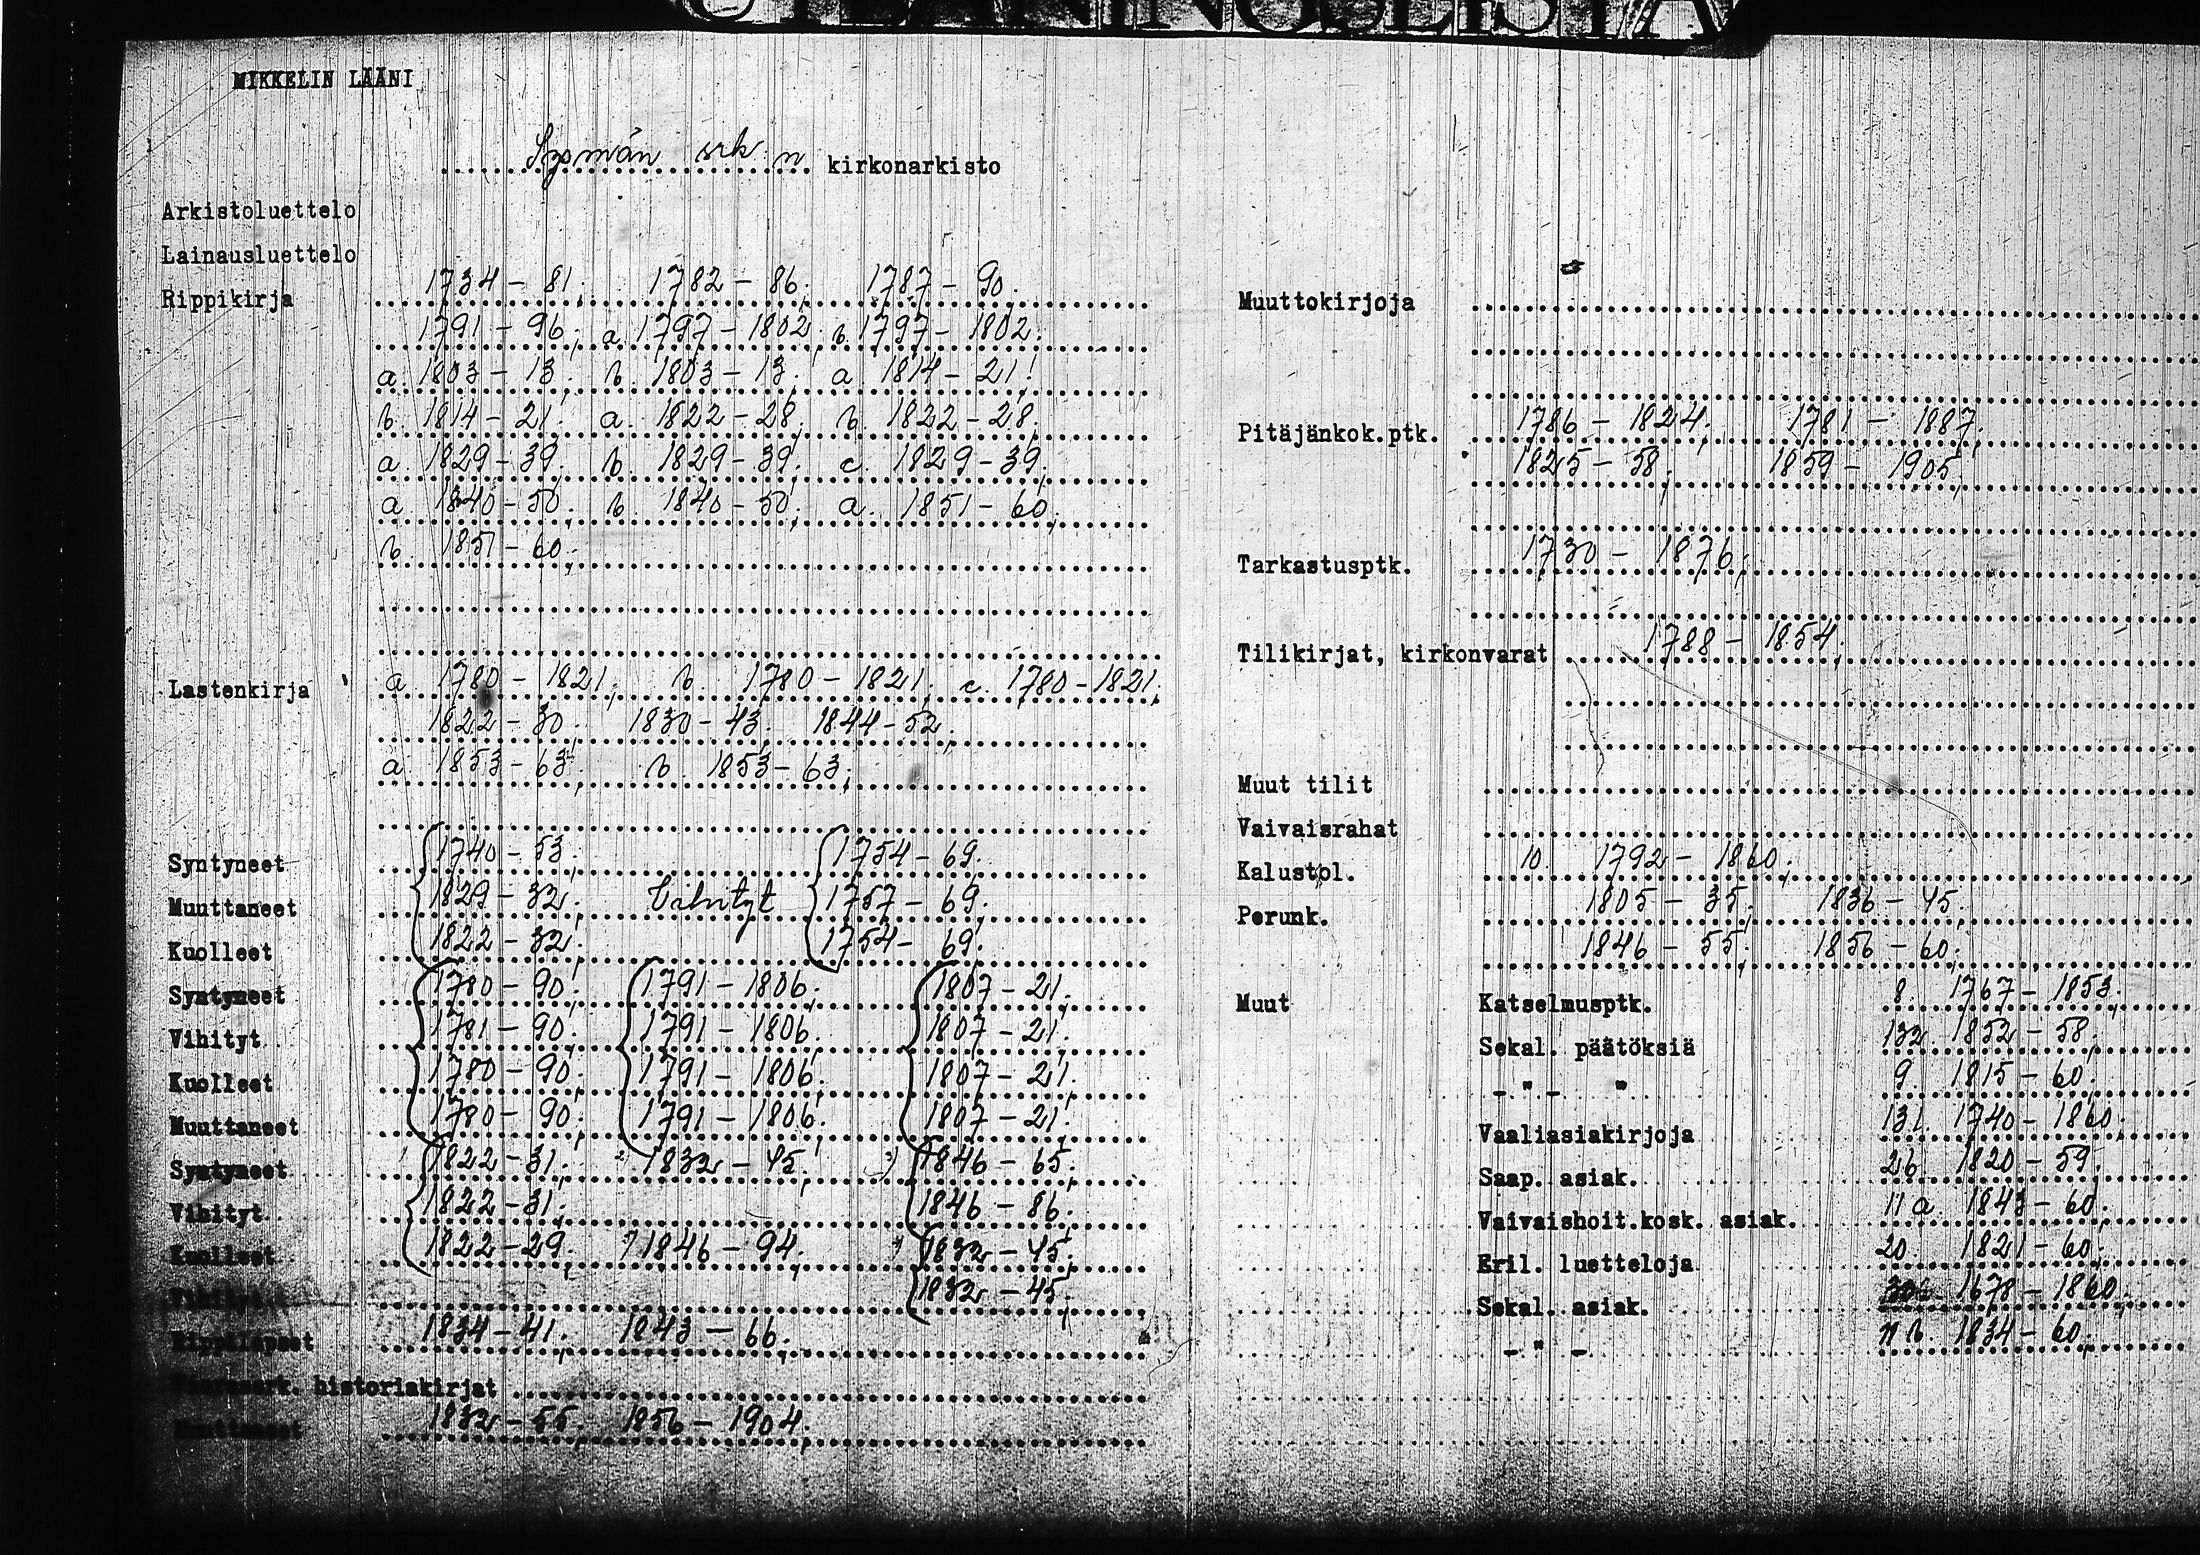 MIKKELIN LÄÄNI
Sysmän srk:n kirkonarkisto
Arkistoluettelo
Lainausluettelo
Rippikirja 1734 - 81; 1782 - 86; 1787 - 90.
1791 - 96; a. 1797 - 1802; b. 1797 - 1802.
a. 1803 - 13; b. 1803 - 13; a. 1814 - 21;
b. 1814 - 21; a. 1822 - 28; b. 1822 - 28;
a. 1829 - 39; b. 1829 - 39; c. 1829 - 39;
a. 1840 - 50; b. 1840 - 50; a. 1851 - 60;
b. 1851 - 60;
Lastenkirja a 1780 - 1821; b. 1780 - 1821; c. 1780 - 1821;
1822 - 30; 1830 - 43; 1844 - 52;
a 1853 - 63; b. 1853 - 63;
Syntyneet 1740 - 53; 1754 - 69;
Muuttaneet 1829 - 32; Vihityt 1757 - 69;
Kuolleet 1822 - 32; 1754 - 69;
Syntyneet 1780 - 90; 1791 - 1806; 1807 - 21;
Vihityt 1781 - 90; 1791 - 1806; 1807 - 21;
Kuolleet 1780 - 90; 1791 - 1806; 1807 - 21;
Muuttaneet 1780 - 90; 1791 - 1806; 1807 - 21;
Syntyneet 1822 - 31; 1832 - 45; 1846 - 65;
Vihityt 1822 - 31; 1846 - 86;
Kuolleet 1822 - 29; 1846 - 94; 1832 - 45;
Vihityt 1832 - 45;
Rippilapset 1834 - 41; 1843 - 66;
historiakirjat
Muuttaneet 1832 - 55; 1856 - 1904;
Muuttokirjoja
Pitäjänkok.ptk. 1786 - 1824; 1781 - 1887;
1825 - 58; 1859 - 1905;
Tarkastusptk. 1730 - 1876;
Tilikirjat, kirkonvarat 1788 - 1854;
Muut tilit
Vaivaisrahat
Kalustol. 10. 1792 - 1860;
Perunk. 1805 - 35; 1836 - 45;
1846 - 55; 1856 - 60;
Muut Katselmusptk. 8. 1767 - 1853;
Sekal. päätöksiä 132 1852 - 58;
- " - " 9. 1815 - 60;
Vaaliasiakirjoja 131. 1740 - 1860;
Saap. asiak. 26. 1820 - 59;
Vaivaishoit.kosk. asiak. 11 a 1843 - 60;
Eril. luetteloja 20. 1821 - 60;
Sekal. asiak. 1678 - 1860;
- " - 11 b. 1834 - 60;